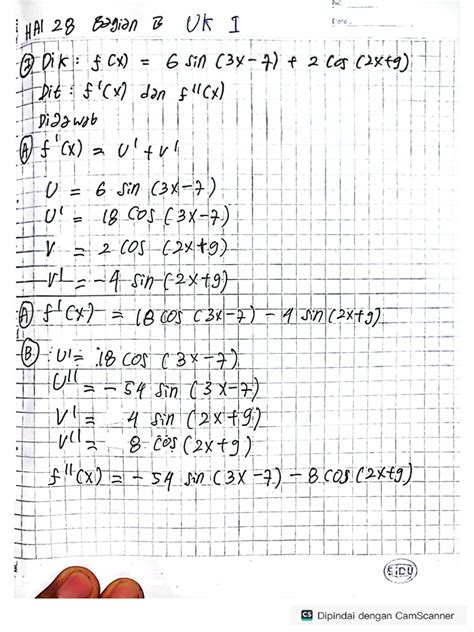 HAl 28 Bagian B UK I
No:
Date:
② Dik: f(x) = 6 sin (3x-7) + 2 Cos (2x+9)
Dit: f'(x) dan f''(x)
Dijawab
Ⓐ f'(x) = U' + V'
U = 6 sin (3x-7)
U' = 18 COS (3x-7)
V = 2 COS (2x+9)
V' = -4 sin (2x+9)
Ⓐ f'(x) = 18 cos (3x-7) - 4 sin (2x+9)
Ⓑ : U' = 18 cos (3x-7)
U'' = -54 sin (3x-7)
V' = 4 sin (2x+9)
V'' = 8 cos (2x+9)
f''(x) = -54 sin (3x-7) - 8 cos (2x+9)
SiDU
CS Dipindai dengan CamScanner